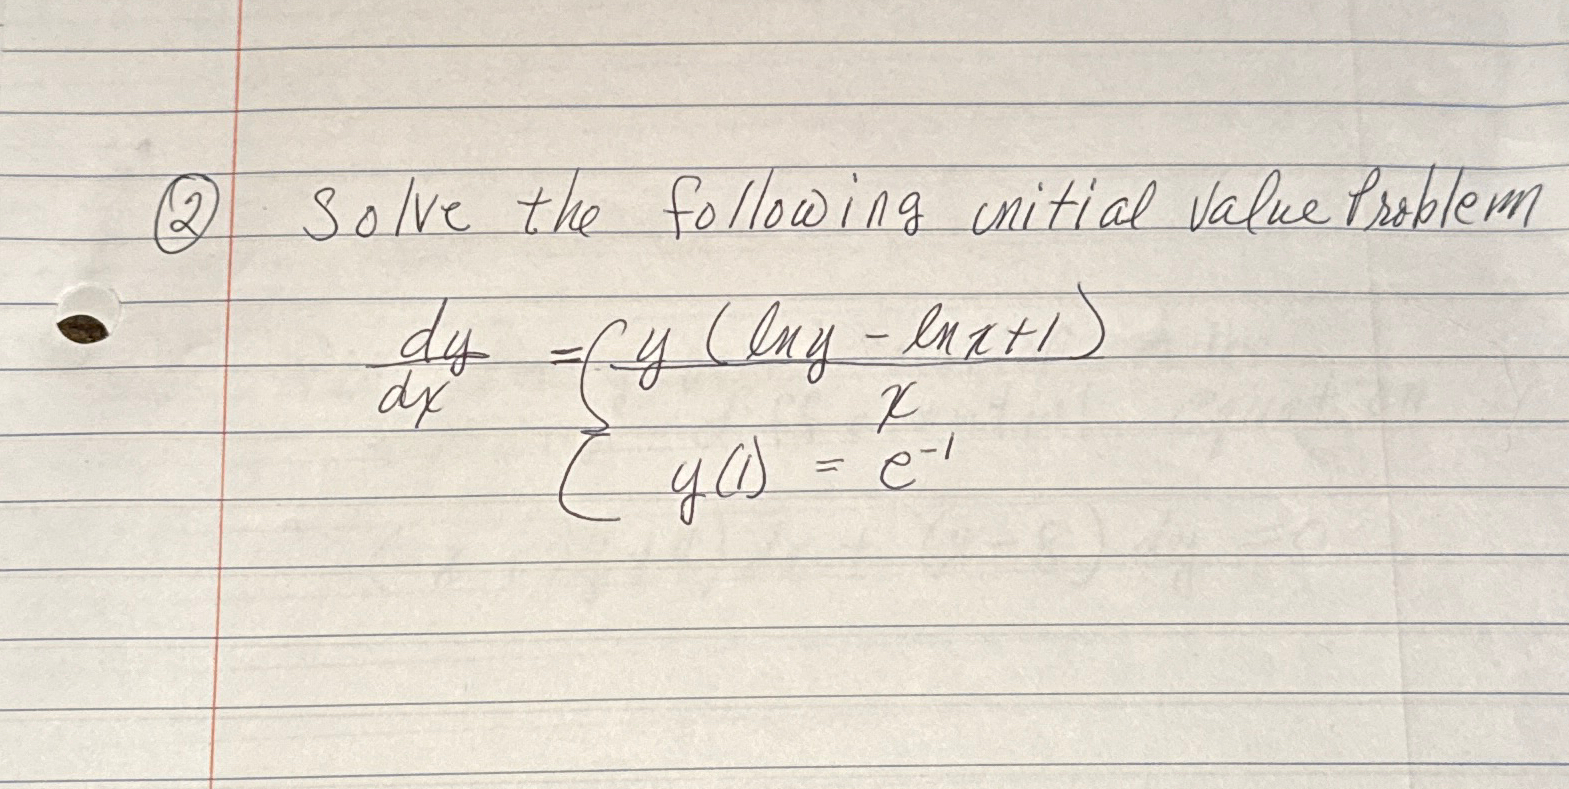 ② Solve the following initial value Problem
dy/dx = { y (ln y - ln x + 1) / x
y(1) = e^-1